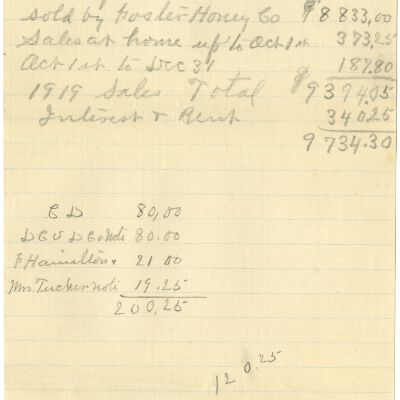 sold by Foster Honey Co $8 833,00
Sales at home up to Oct 1st 373,25
Oct 1st to Dec 31 187.80
1919 Sales Total $9394.05
Interest & Rent 340.25
9 734.30
C D 80,00
80.00
F Hamilton 21 00
Mrs Tucker noti 19.25
200,25
120.25